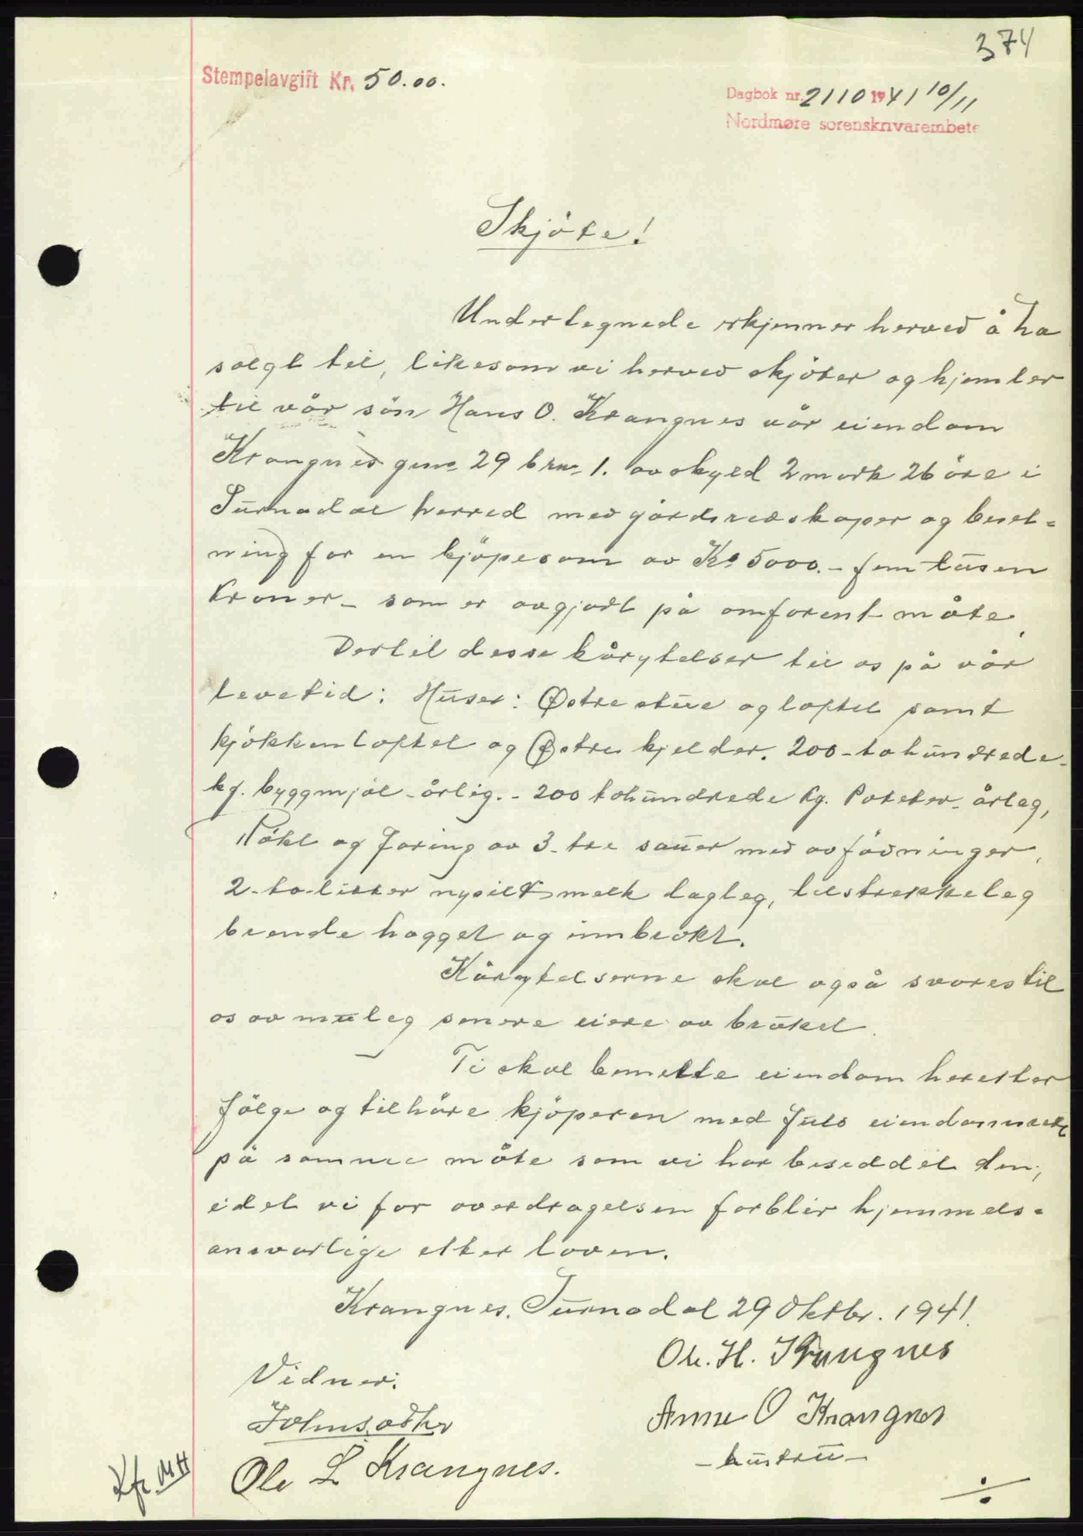 374
Stempelavgift Kr. 50.00.
Dagbok nr. 2110 1941 10/11
Nordmøre sorenskrivarembete
Skjöte!
Undertegnede erkjenner herved å ha
solgt til, likesom vi herved skjöter og hjemler
til vår sön Hans O. Krangnes vår eiendom
Krangnes gnr. 29 brn. 1. av skyld 2 mark 26 öre i
Surnadal herred med gårdsredskaper og beset-
ning for en kjöpesom av Kr 5000.- fem tusen
Kroner - som er avgjort på omforent måte.
Dertil desse kårytelser til os på vår
levetid: Huser: Østre stue og loftet samt
kjökkenloftet og Østre kjelder. 200 - to hundrede -
kg. byggmjöl - årlig. - 200 tohundrede kg. Poteter - årleg,
Rökt og foring av 3 - tre sauer med avfödninger,
2 - to - litter nysilt melk dagleg, tilstrekkeleg
brende hogget og innbrökt.
Kårytelserne skal også svares til
os av muleg senere eiere av bruket.
Ti skal benevnte eiendom herefter
fölge og tilhöre kjöperen med full eiendomsrett
på samme måte som vi har beseddet den,
idet vi for overdragelsen forblir hjemmels-
ansvarlige etter loven.
Krangnes, Surnadal 29 Oktbr. 1941.
Ole. H. Krangnes
Vidner:
Anne O Krangnes
- hustru -
Ole L Krangnes.
Kfr. MH
÷